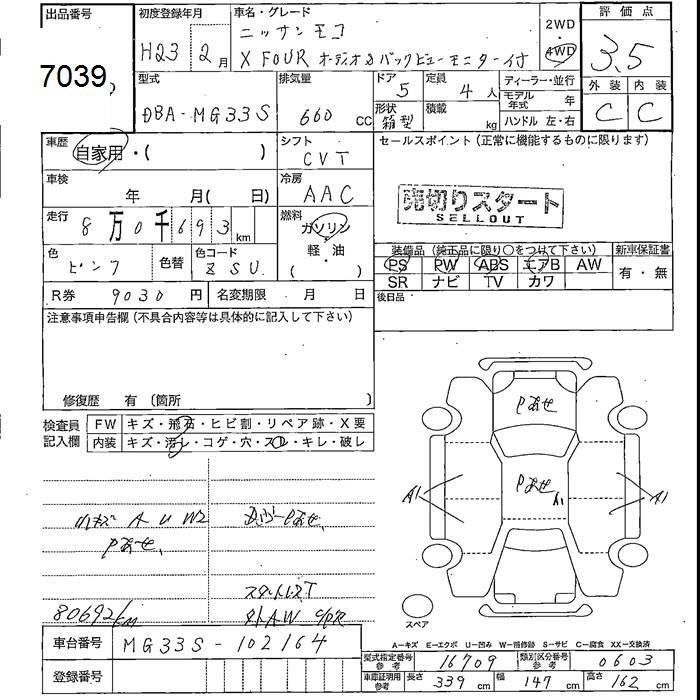 出品番号
7039
初度登録年月
H23 2月
車名・グレード
ニッサンモコ
X FOUR オーディオ&バックビューモニター付
2WD
・
4WD
評価点
3.5
外装 内装
C C
型式
DBA-MG33S
排気量
660 CC
ドア 5
定員 4人
形状 箱型
積載 kg
ディーラー・並行
モデル年式 年
ハンドル 左・右
車歴
自家用・( )
シフト
CVT
セールスポイント(正常に機能するものに限ります)
売切りスタート
SELLOUT
車検
年 月( 日)
冷房
AAC
走行
8万0千693km
燃料
ガソリン
軽・油
( )
色
ピンク
色替
色コード
ZSU
装備品(純正品に限り○をつけて下さい)
新車保証書
PS PW ABS エアB AW
SR ナビ TV カワ
有・無
R券 9030円
名変期限 月 日
後日品
注意事項申告欄(不具合内容等は具体的に記入して下さい)
修復歴 有(箇所 )
検査員記入欄
FW キズ・飛石・ヒビ割・リペア跡・X要
内装 キズ・汚レ・コゲ・穴・スレ・キレ・破レ
小キズ A U W2
Pあせ
Pあせ
80692km
スタッドレスT
外AW
Pあせ
Pあせ
A1
A1
A1
スペア
A−キズ E−エクボ U−凹み W−補修跡 S−サビ C−腐食 XX−交換済
車台番号 MG33S-102164
登録番号
型式指定番号参考 16709
類別区分番号参考 0603
車庫証明用参考 長さ 339cm 幅 147cm 高さ 162cm